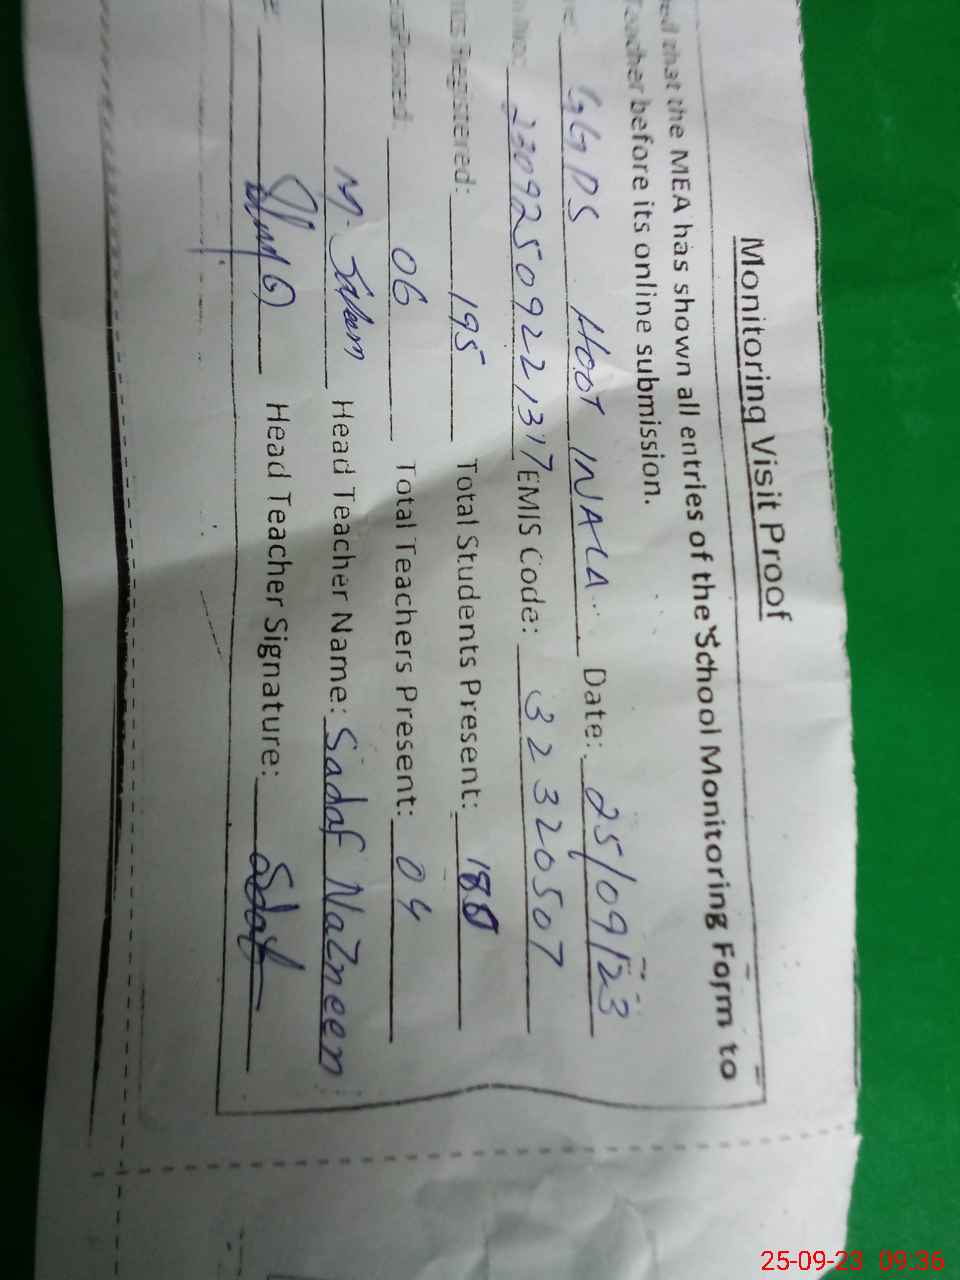 Monitoring Visit Proof
ed that the MEA has shown all entries of the School Monitoring Form to
Teacher before its online submission.
GGPS HOOT WALA Date: 25/09/23
2309250922137 EMIS Code: 32320507
Registered: 195 Total Students Present: 180
Posted: 06 Total Teachers Present: 04
M. Saleem Head Teacher Name: Sadaf Nazneen
Head Teacher Signature: Sadaf
25-09-23 09:36